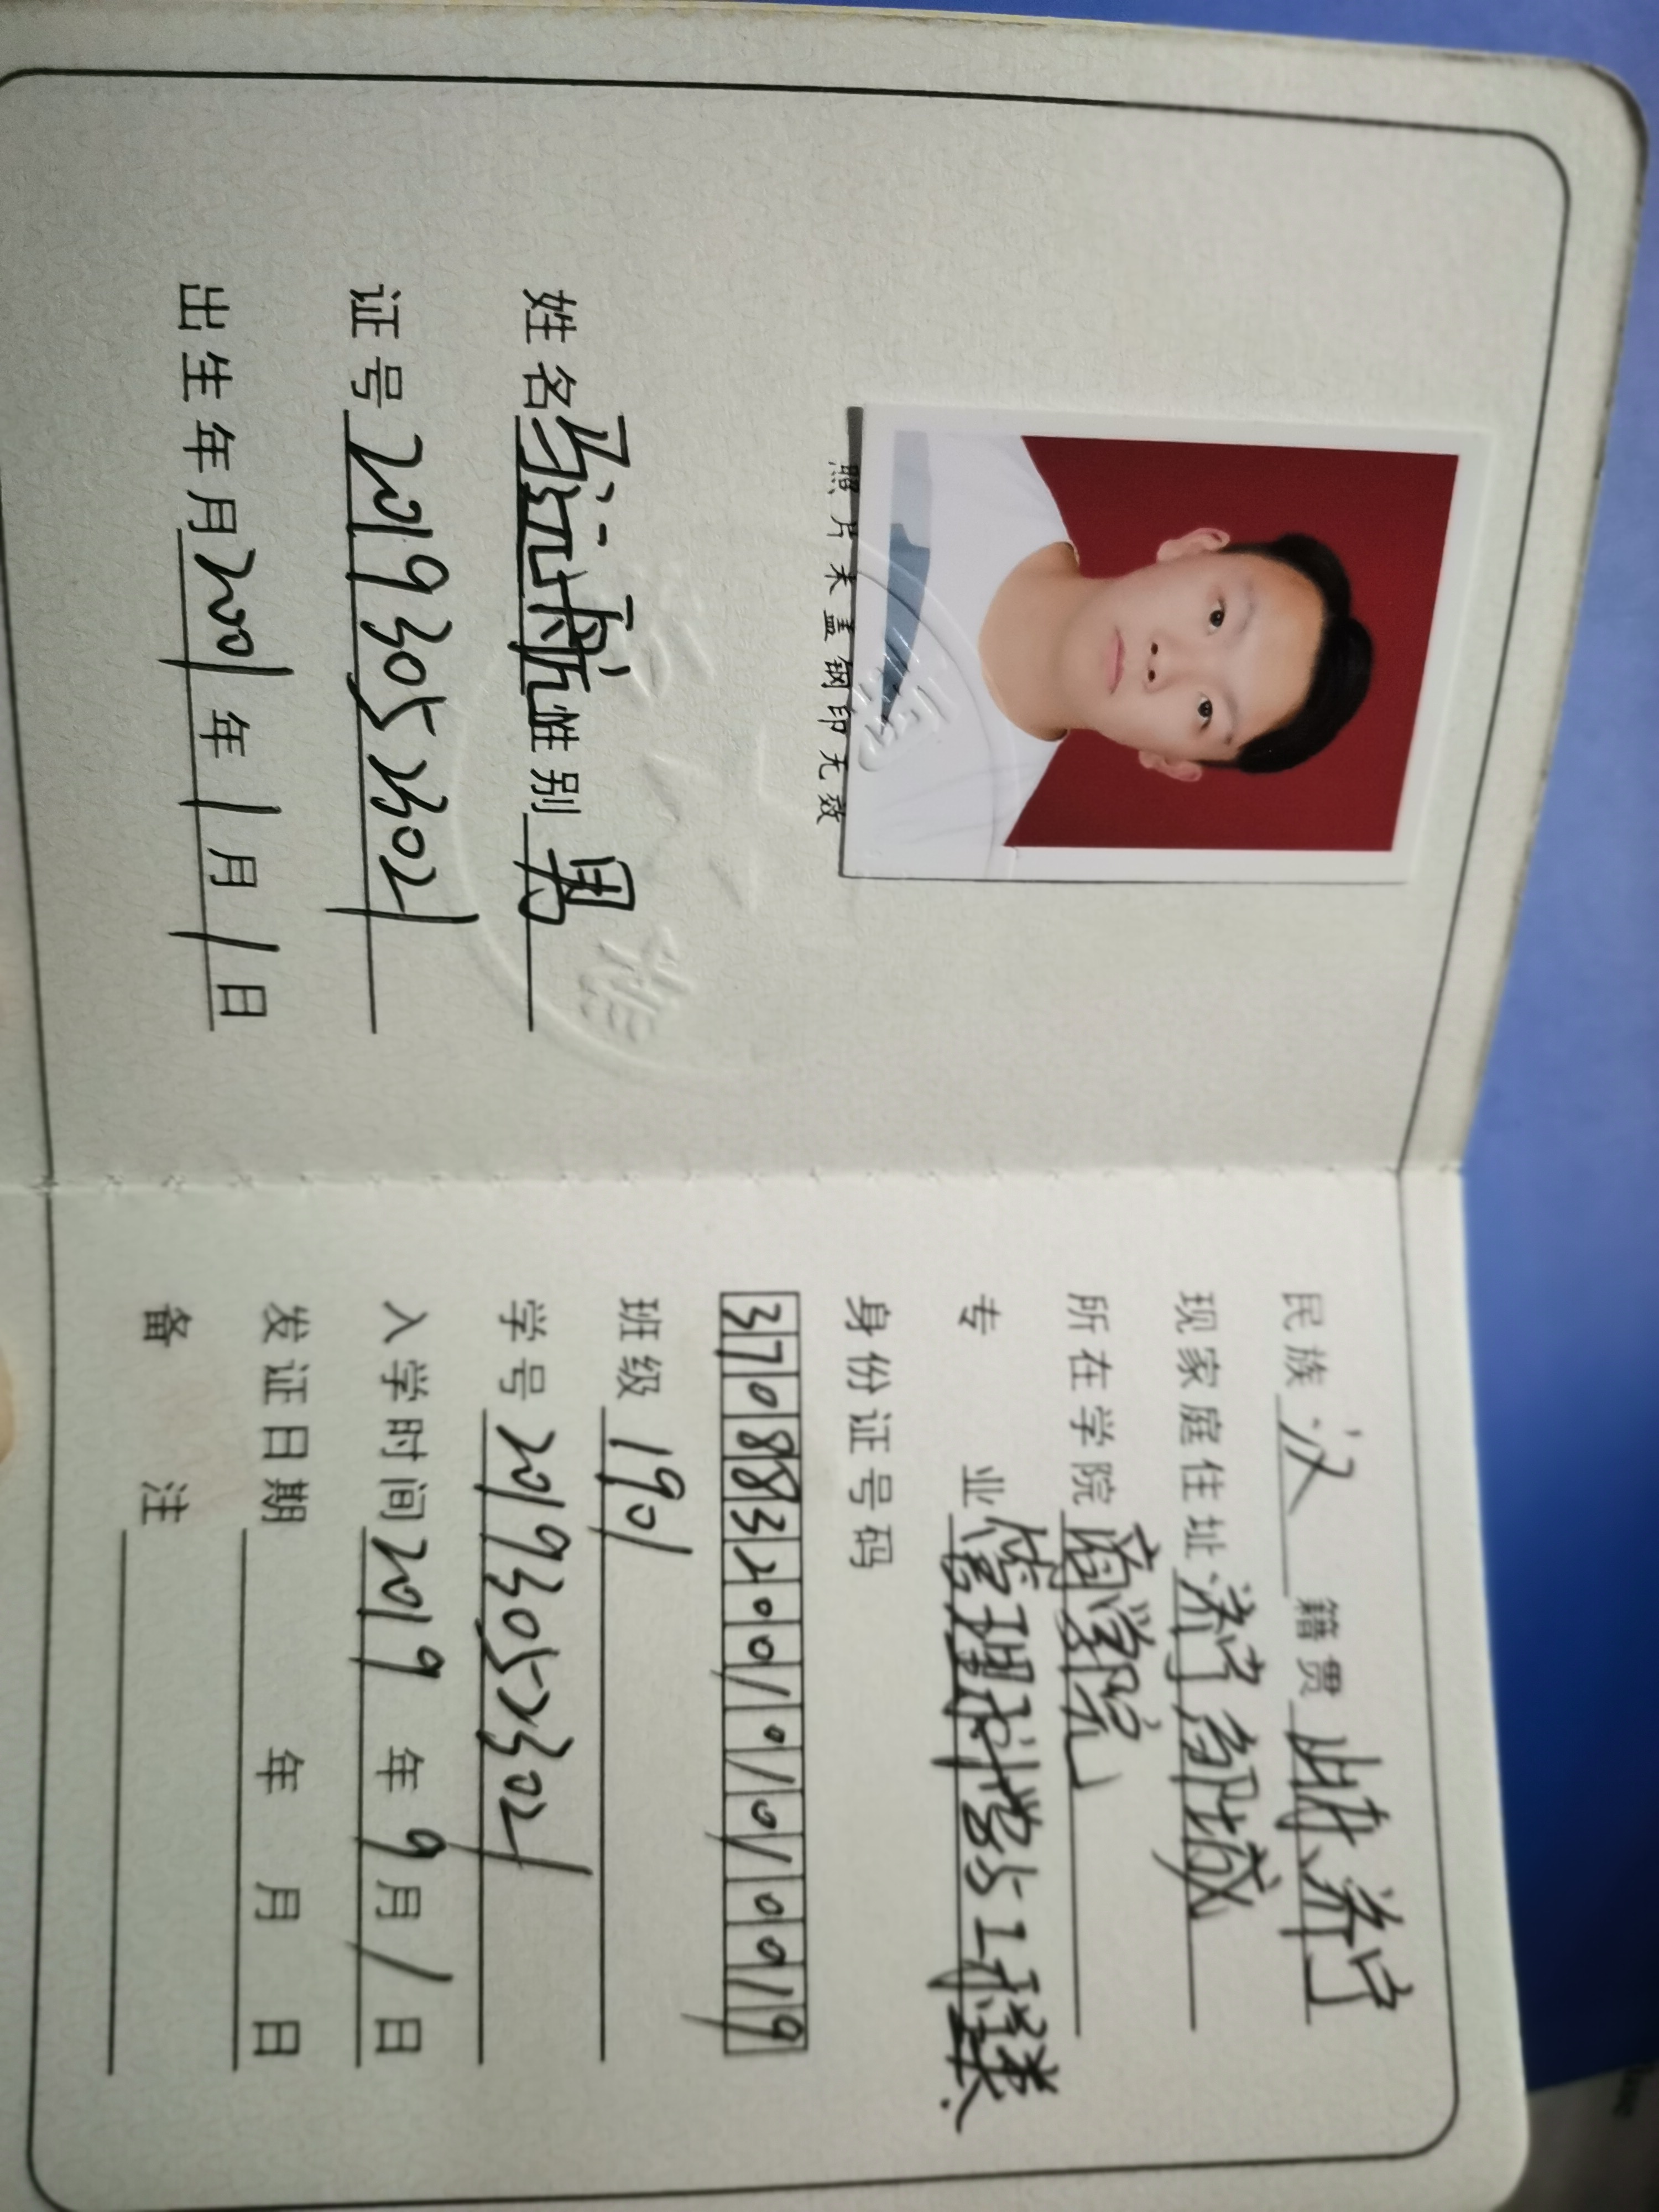 照片未盖钢印无效
姓名 运航 性别 男
证号 201930523021
出生年月 2001 年 1 月 1 日
民族 汉 籍贯 山东济宁
现家庭住址 济宁邹城
所在学院 商学院
专业 管理科学与工程类
身份证号码
370883200101010019
班级 1901
学号 201930523021
入学时间 2019 年 9 月 1 日
发证日期 年 月 日
备注